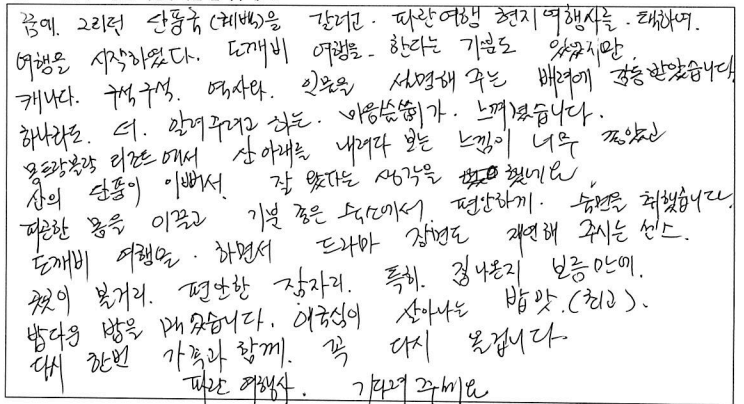 꿈에. 그리던 단풍국(퀘백)을 갈려고. 파란여행 현지여행사를. 택하여.
여행을 시작하였다. 도깨비 여행을. 한다는 기분도 있었지만,
캐나다. 구석구석. 역사와. 인물을 설명해 주는 배려에 감동받았습니다
하나라도. 더. 알려주려고 하는. 마음씀씀이가. 느껴졌습니다.
몽트랑블랑 리조트에서 산아래를 내려다 보는 느낌이 너무 좋았고
산의 단풍이 이뻐서. 잘 왔다는 생각을 했네요
피곤한 몸을 이끌고 기분 좋은 숙소에서. 편안하게. 숙면을 취했습니다.
도깨비 여행을. 하면서 드라마 장면도 재연해 주시는 센스.
곳곳이 볼거리. 편안한 잠자리. 특히. 집나온지 보름만에.
밥다운 밥을 먹었습니다. 애국심이 살아나는 밥맛.(최고).
다시 한번 가족과 함께. 꼭 다시 올겁니다.
파란 여행사. 기다려 주세요